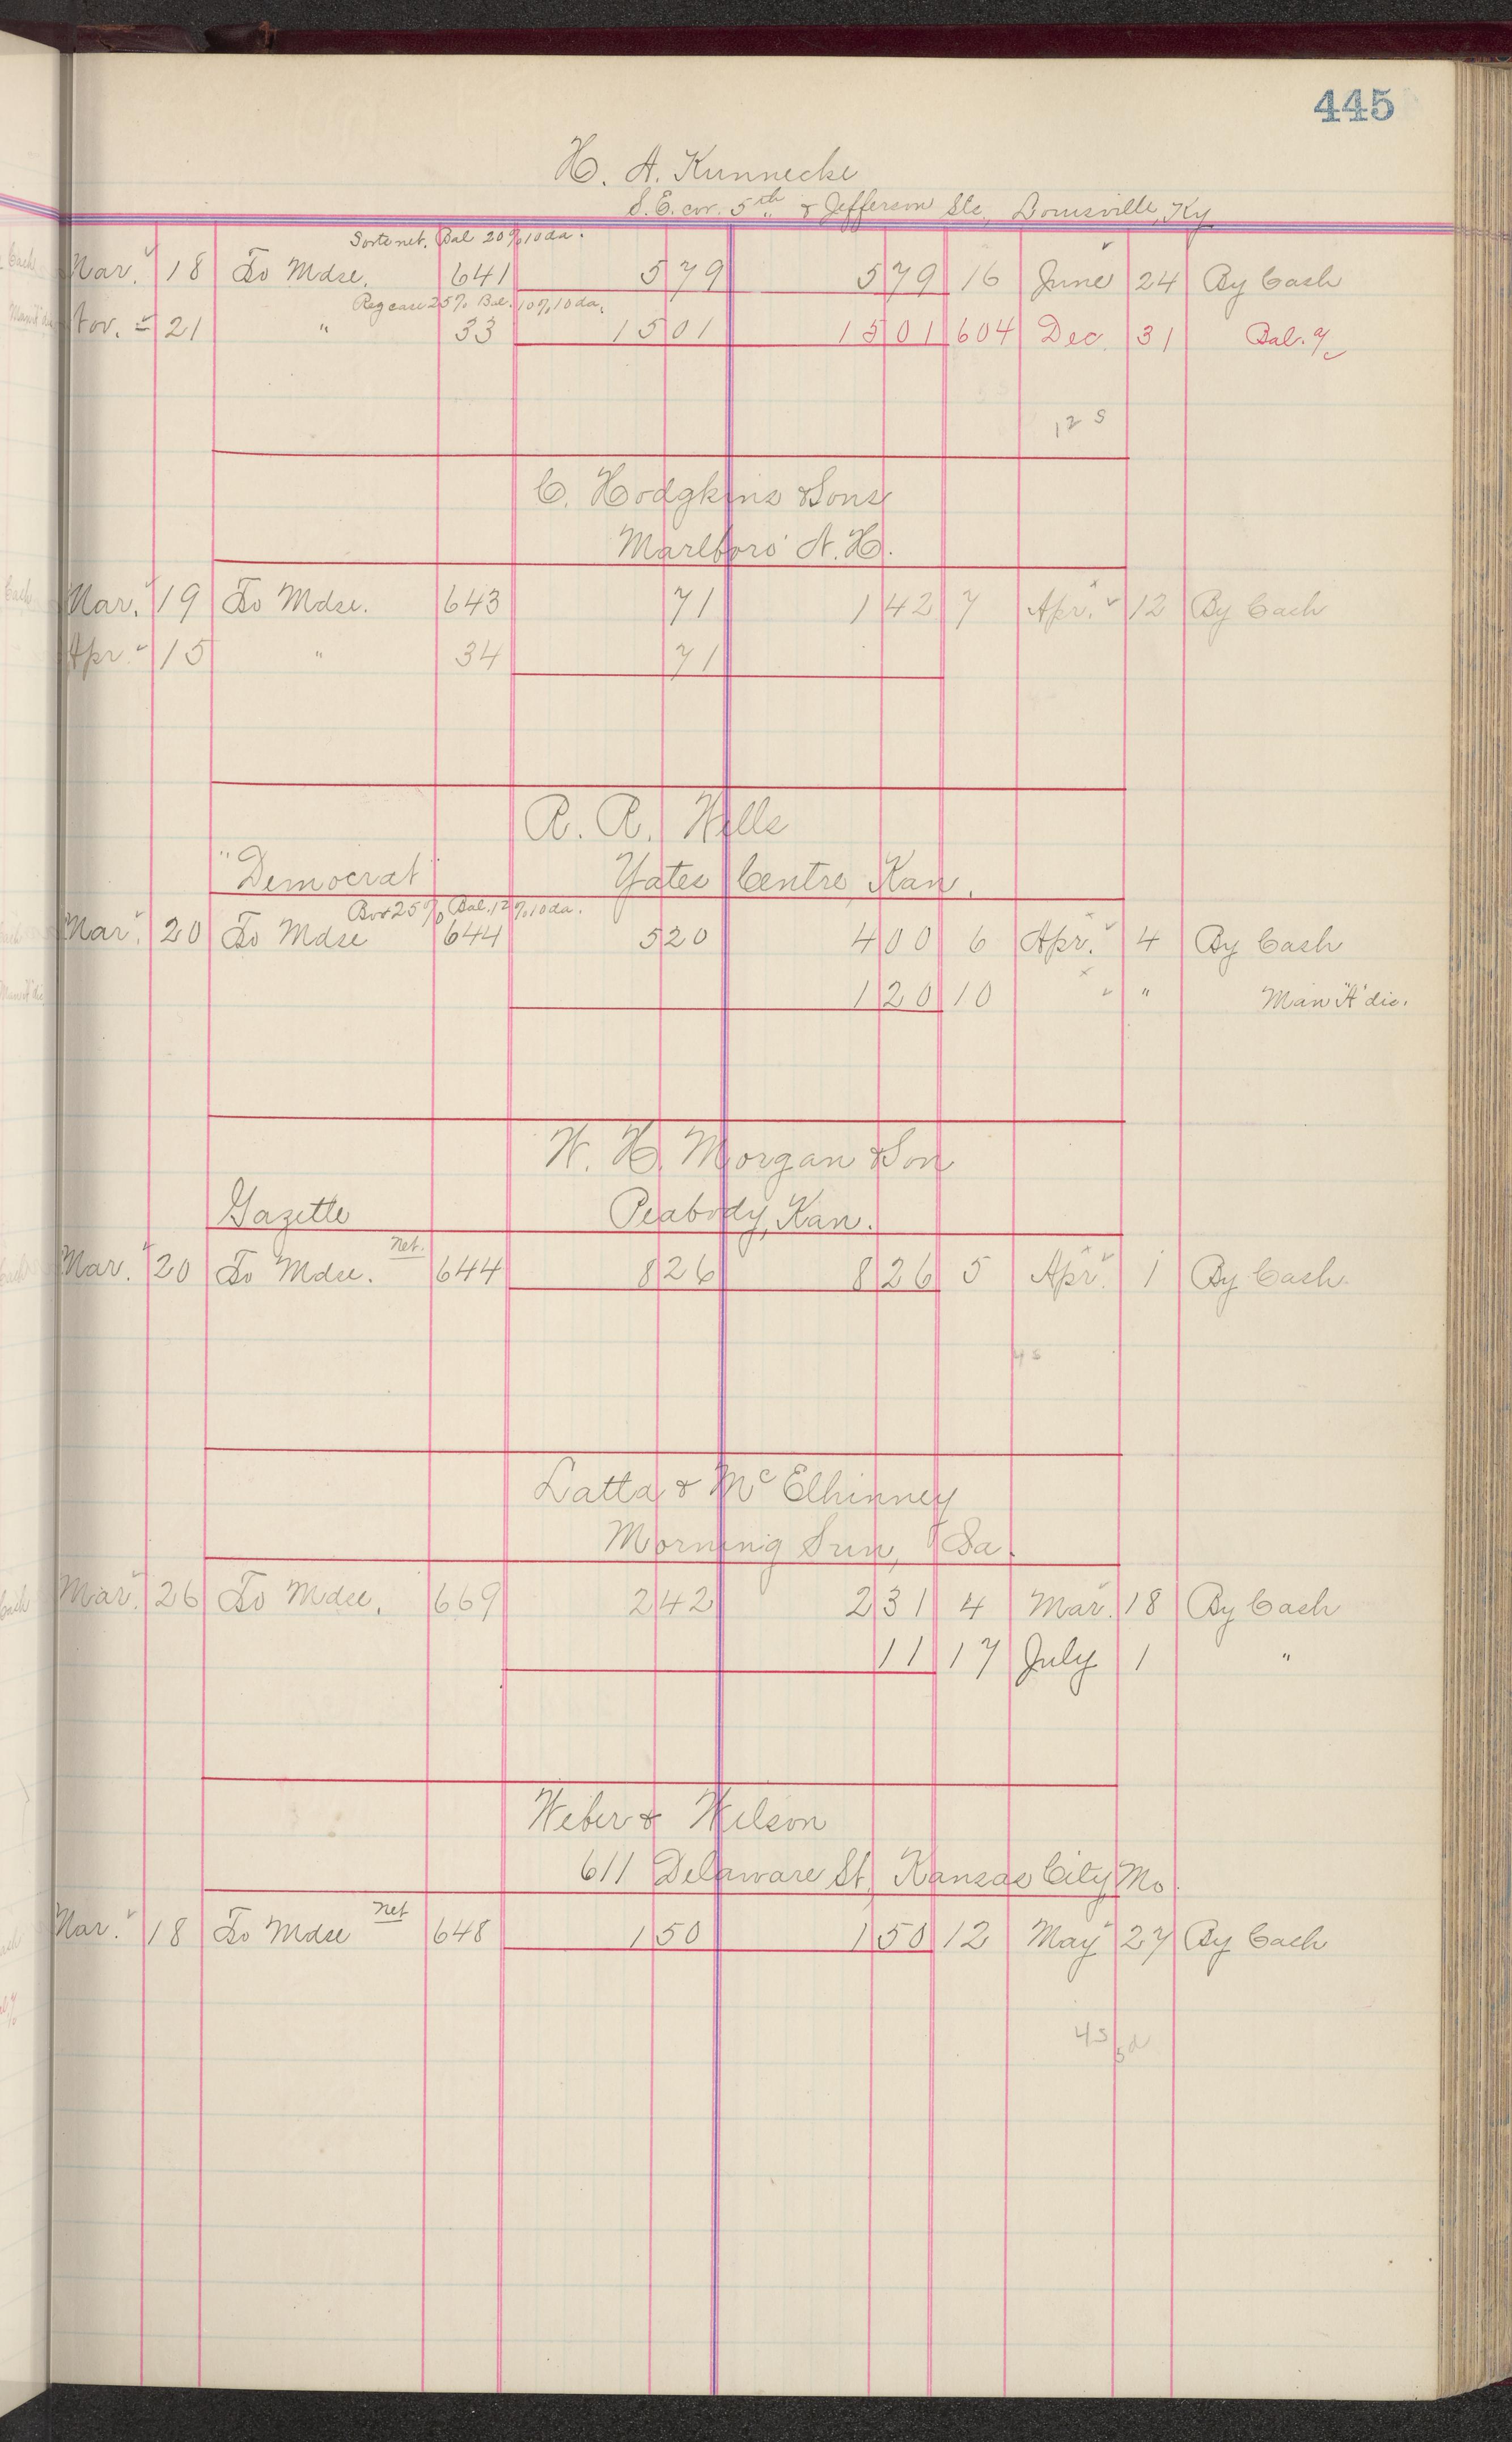 445
H. A. Kunnecke
S.E. cor. 5th & Jefferson Sts, Louisville, Ky
Sorts net. Bal 20% 10 da.
Mar. 18 To Mdse. 641 5 79 5 79 16 June 24 By Cash
Reg case 25% Bal. 10% 10 da.
Nov. 21 " 33 15 01 15 01 604 Dec 31 Bal.
12 S
C. Hodgkins & Sons
Marlboro' N.H.
Mar. 19 To Mdse. 643 71 1 42 7 Apr. 12 By Cash
Apr. 15 " 34 71
R. R. Wells
"Democrat" Yates Centre, Kan.
Box 25% Bal. 12% 10 da.
Mar. 20 To Mdse 644 5 20 4 00 6 Apr. 4 By Cash
1 20 10 " " Man "A" dis.
W. H. Morgan & Son
Gazette Peabody, Kan.
Net.
Mar. 20 To Mdse. 644 8 26 8 26 5 Apr. 1 By Cash
4 S
Latta & McElhinney
Morning Sun, Ia.
Mar. 26 To Mdse. 669 2 42 2 31 4 Mar. 18 By Cash
11 17 July 1 "
Weber & Wilson
611 Delaware St, Kansas City, Mo.
Net
Mar. 18 To Mdse 648 1 50 1 50 12 May 27 By Cash
4 S